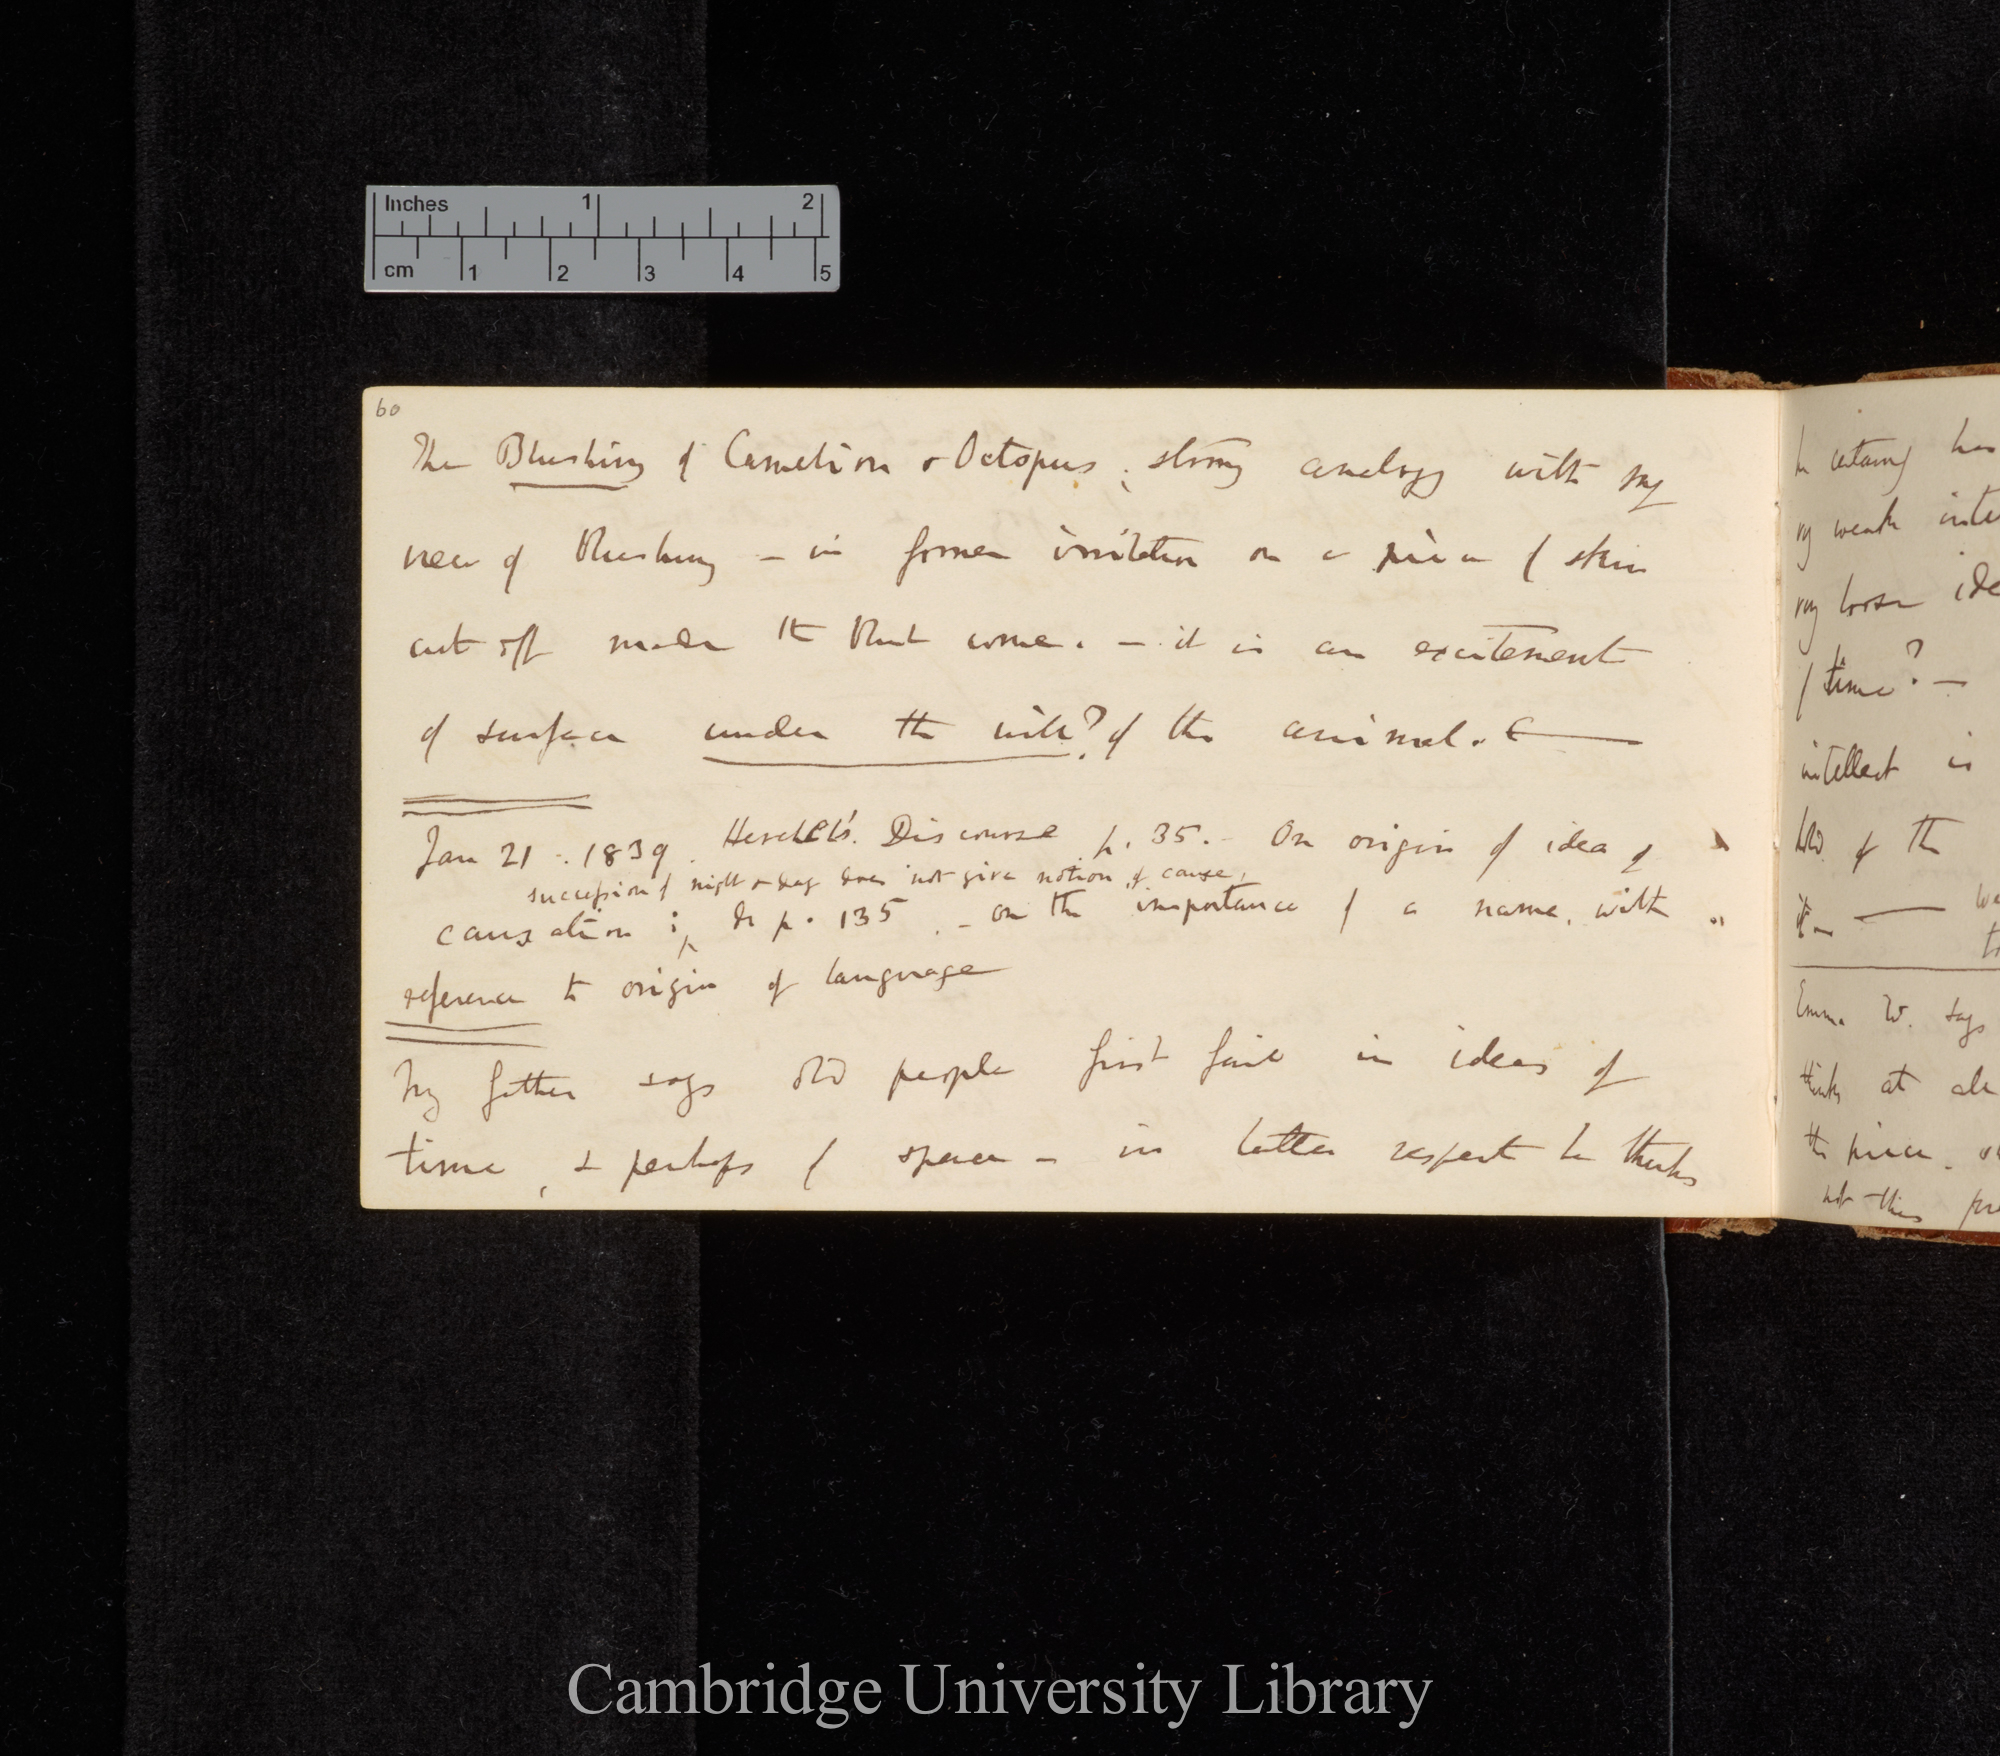 Inches 1 2
cm 1 2 3 4 5
60
The Blushing of Camelion & Octopus; strong analogy with my
view of blushing — in former irritation on a piece of skin
cut off made the blush come. — it is an excitement
of surface under the will? of the animal. —
Jan 21. 1839. Herschel's. Discourse p. 35. — On origin of idea of
succession of night & day does not give notion of cause,
causation; do p. 135. — on the importance of a name, with
reference to origin of language
My father says old people first fail in ideas of
time, & perhaps of space — in latter respect he thinks
weak inte
loose ide
of time? —
intellect is
hold of the
it —
Emma W. says
thinks at
the piece.
not this
Cambridge University Library